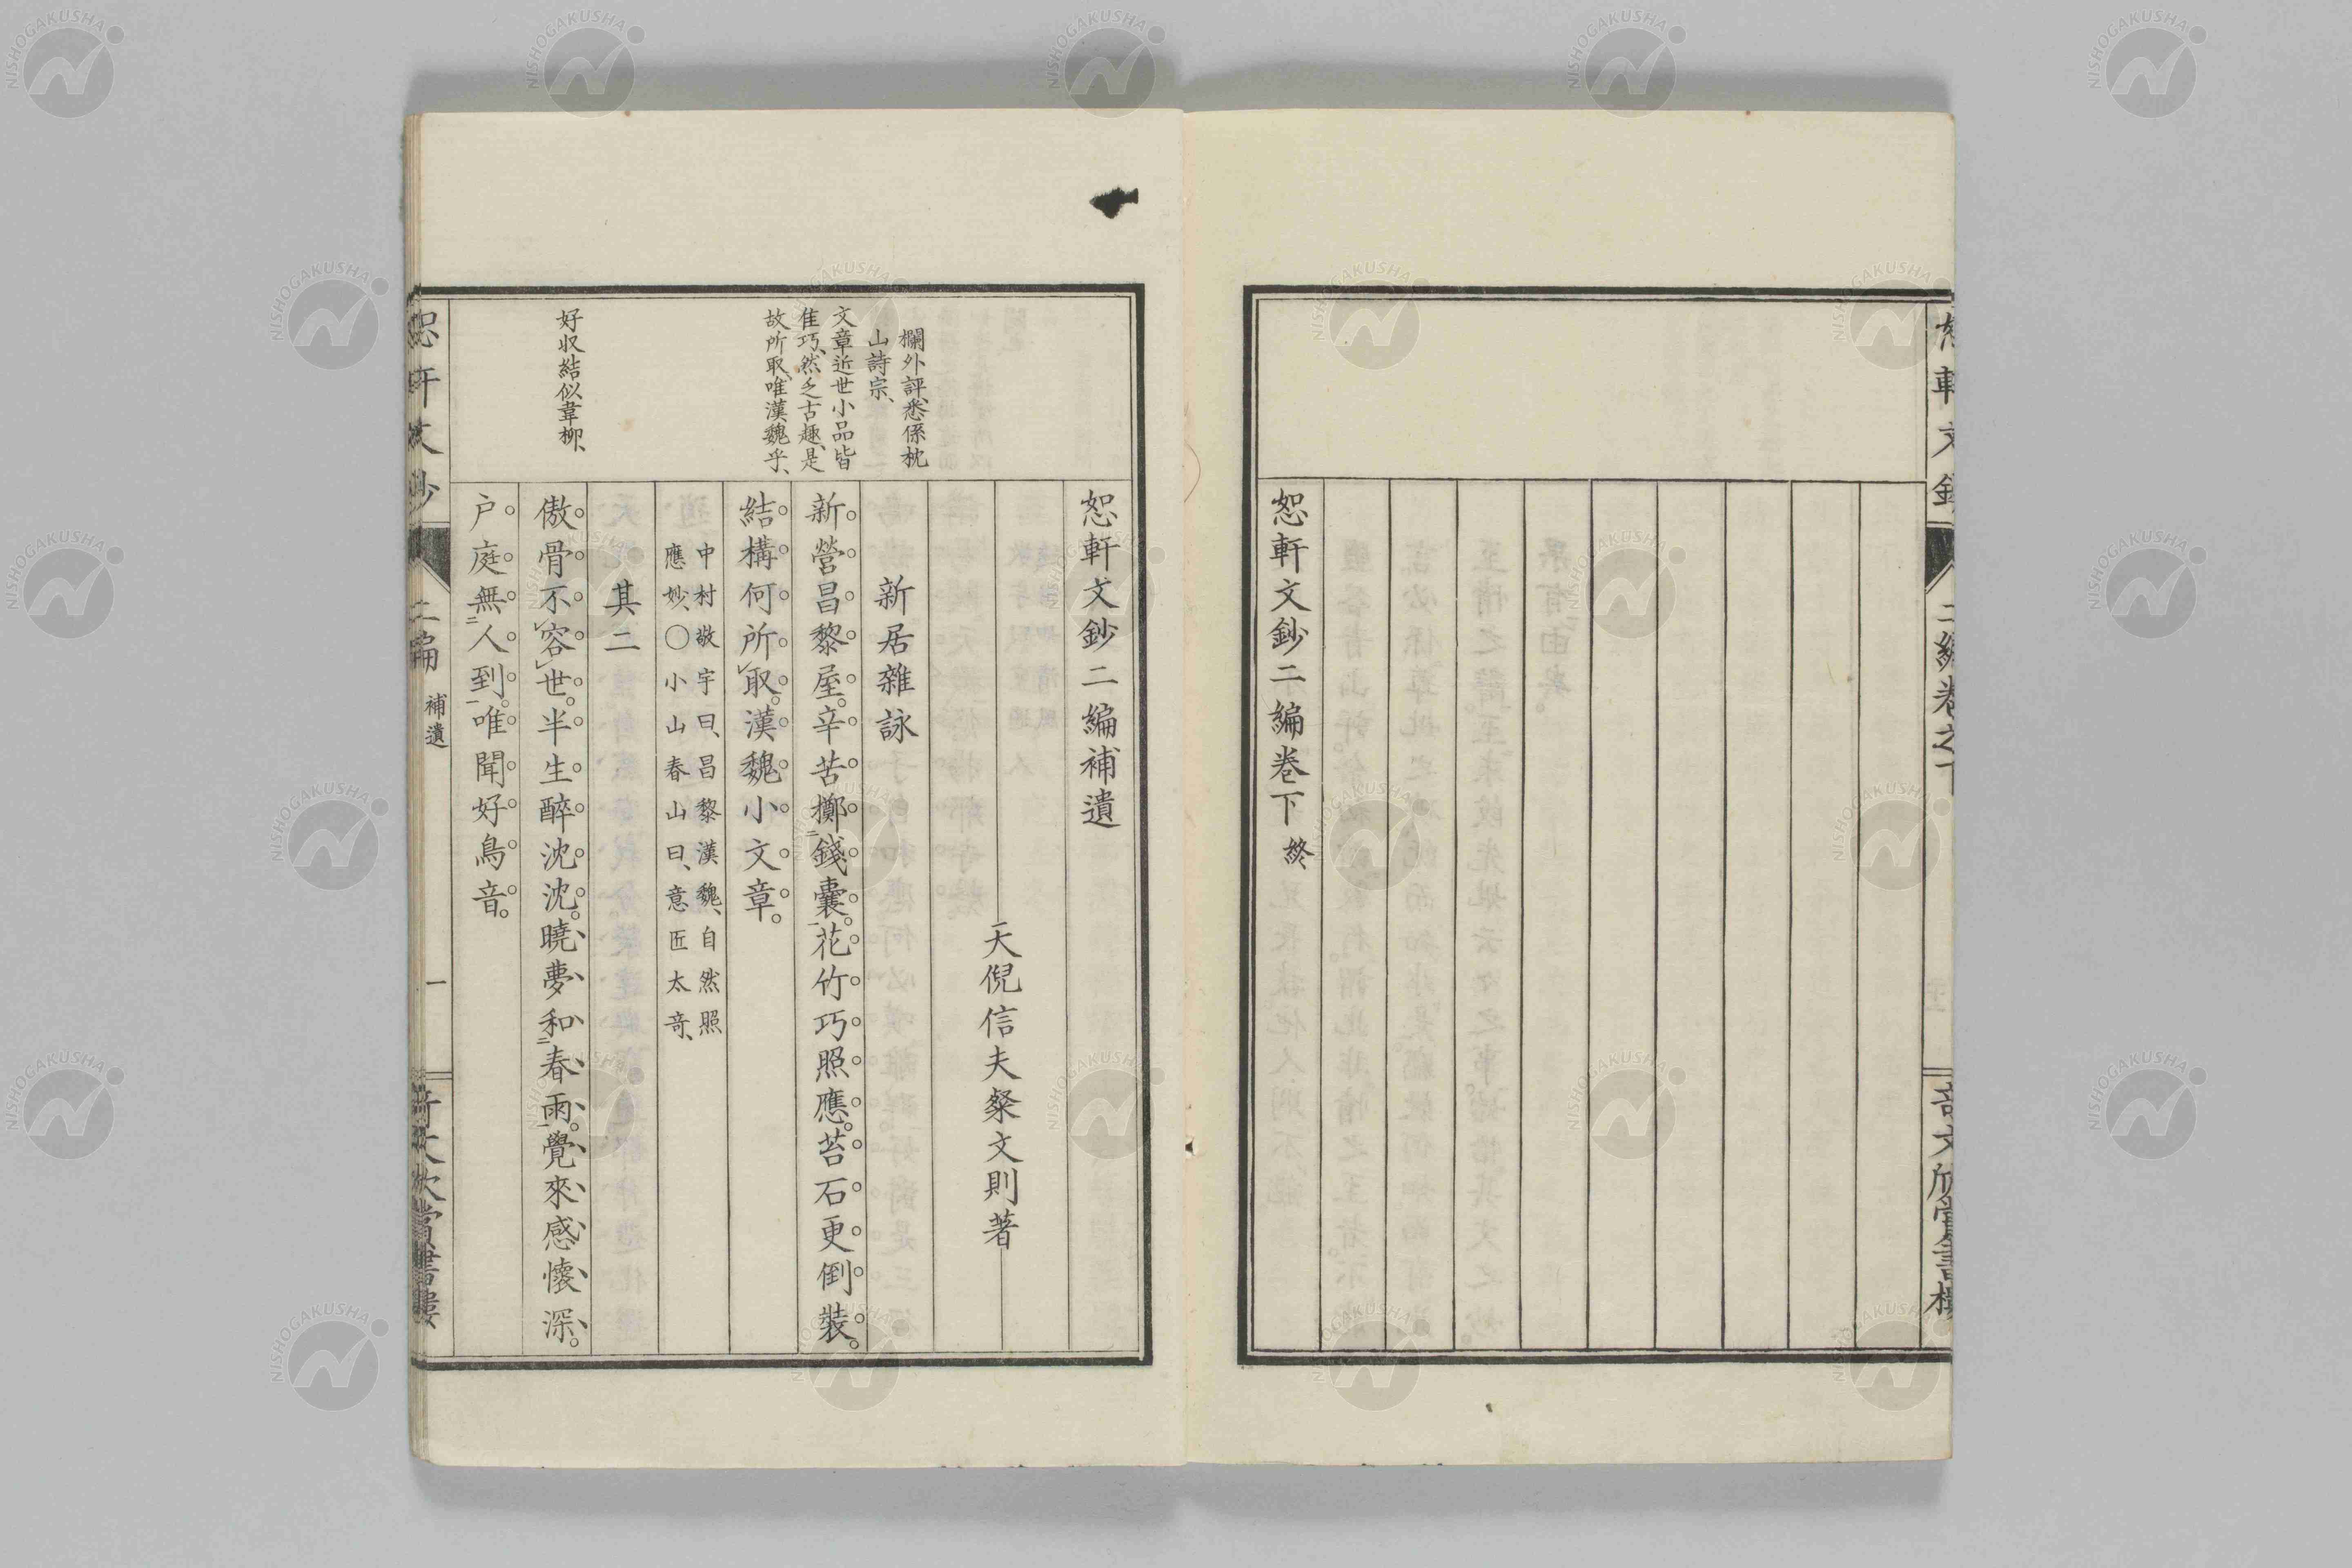 恕軒文鈔
二編卷之下
奇文欣賞書樓
恕軒文鈔二編卷下終
恕軒文鈔二編補遺
天倪信夫粲文則著
欄外評、悉係枕
山詩宗、
新居雜詠
文章近世小品皆
佳巧、然乏古趣、是
故所取、唯漢魏乎、
新營昌黎屋。辛苦擲二錢囊一。花竹巧照應。苔石更倒裝。
結構何所取。漢魏小文章。
中村敬宇曰、昌黎漢魏、自然照
應妙、〇小山春山曰、意匠太奇、
其二
好収結似韋柳、
傲骨不容世。半生醉沈沈。曉夢和二春雨一。覺來感懷深。
户庭無二人到一。唯聞好鳥音。
恕軒文鈔
二編
補遺
一
奇文欣賞書樓
NISHOGAKUSHA